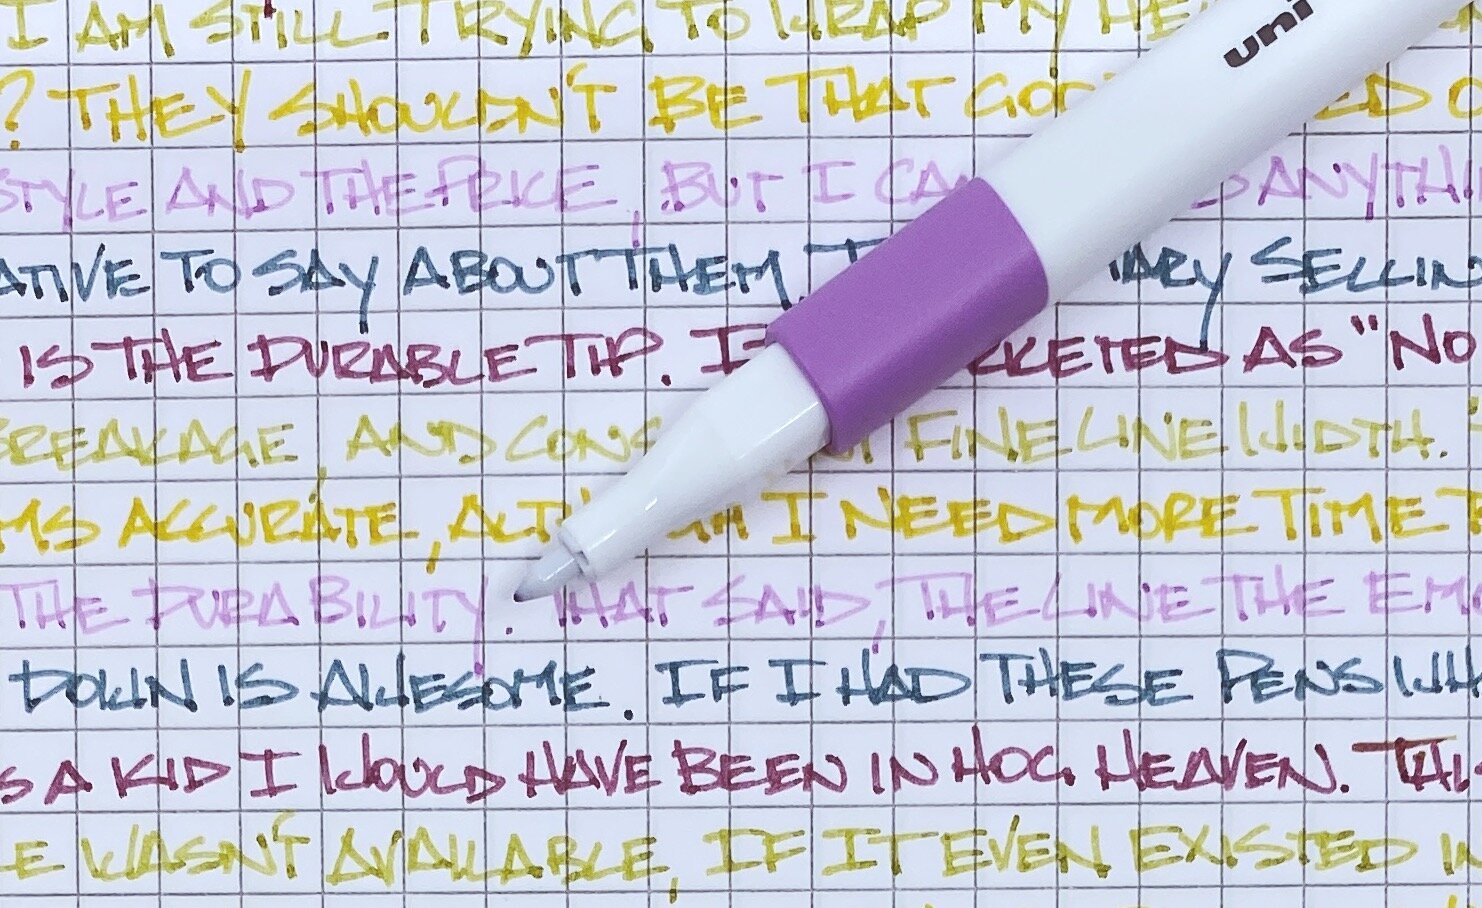 I AM STILL TRYING TO WRAP MY
uni
? THEY SHOULDN'T BE THAT
STYLE AND THE PRICE, BUT I
TO SAY ABOUT THEM.
IS THE DURABLE TIP. AS "NO
BREAKAGE, AND FINE LINE WIDTH."
ACCURATE, I NEED MORE TIME
THE DURABILITY. THAT SAID, THE LINE THE
DOWN IS AWESOME. IF I HAD THESE PENS
A KID I WOULD HAVE BEEN IN HOG HEAVEN.
WASN'T AVAILABLE, IF IT EVEN EXISTED